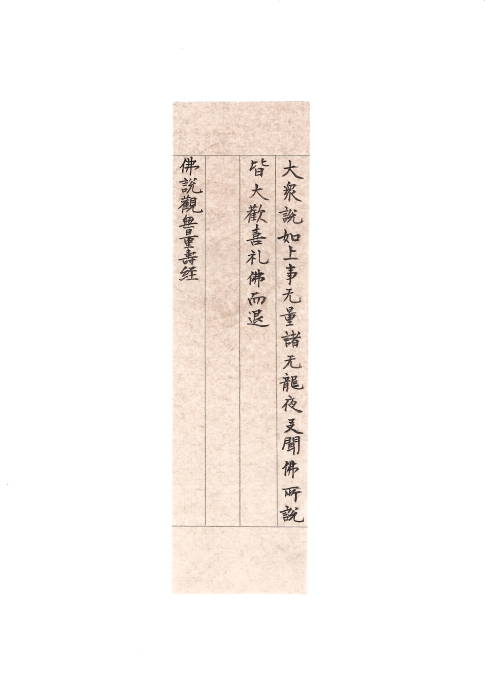 大衆說如上事无量諸天龍夜叉聞佛所說
皆大歡喜礼佛而退
佛說觀無量壽経